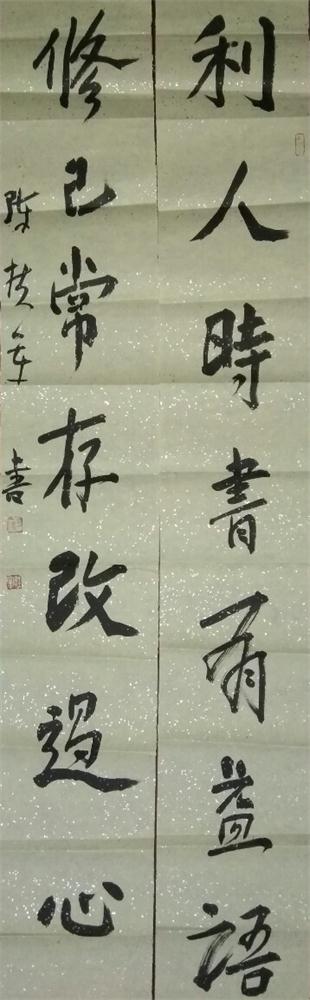 利人時書有益語
修己常存改過心
陳扶軍書